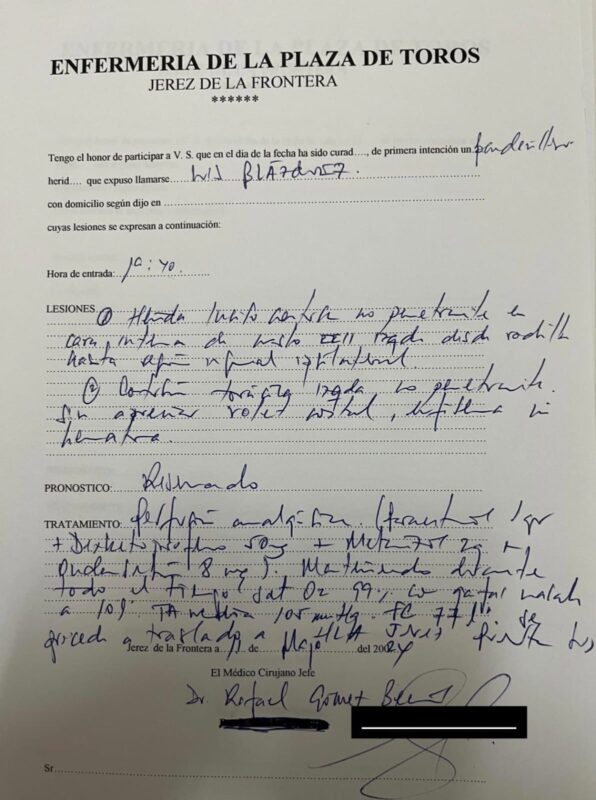 ENFERMERIA DE LA PLAZA DE TOROS
JEREZ DE LA FRONTERA
******
Tengo el honor de participar a V. S. que en el día de la fecha ha sido curad...., de primera intención un banderillero
herid.... que expuso llamarse Luis Blázquez.
con domicilio según dijo en
cuyas lesiones se expresan a continuación:
Hora de entrada:
LESIONES ① Herida no penetrante en
cara interna de muslo EEII izqda desde rodilla
hasta región inguinal ipsilateral.
② Contusión torácica izqda no penetrante.
Sin apreciar volet costal, enfisema ni
hematoma.
PRONOSTICO: Reservado
TRATAMIENTO: Perfusión analgésica (Paracetamol 1gr
+ Dexketoprofeno 50mg + Metamizol 2g +
Ondansetrón 8 mg). Manteniendo durante
todo el tiempo sat O2 99% con gafas nasales
a 10l. TA media 105 mmHg. FC 77 l' Se
procede a traslado a HLA Jerez
Jerez de la Frontera a de Mayo del 2024
El Médico Cirujano Jefe
Dr. Rafael Gómez
Sr